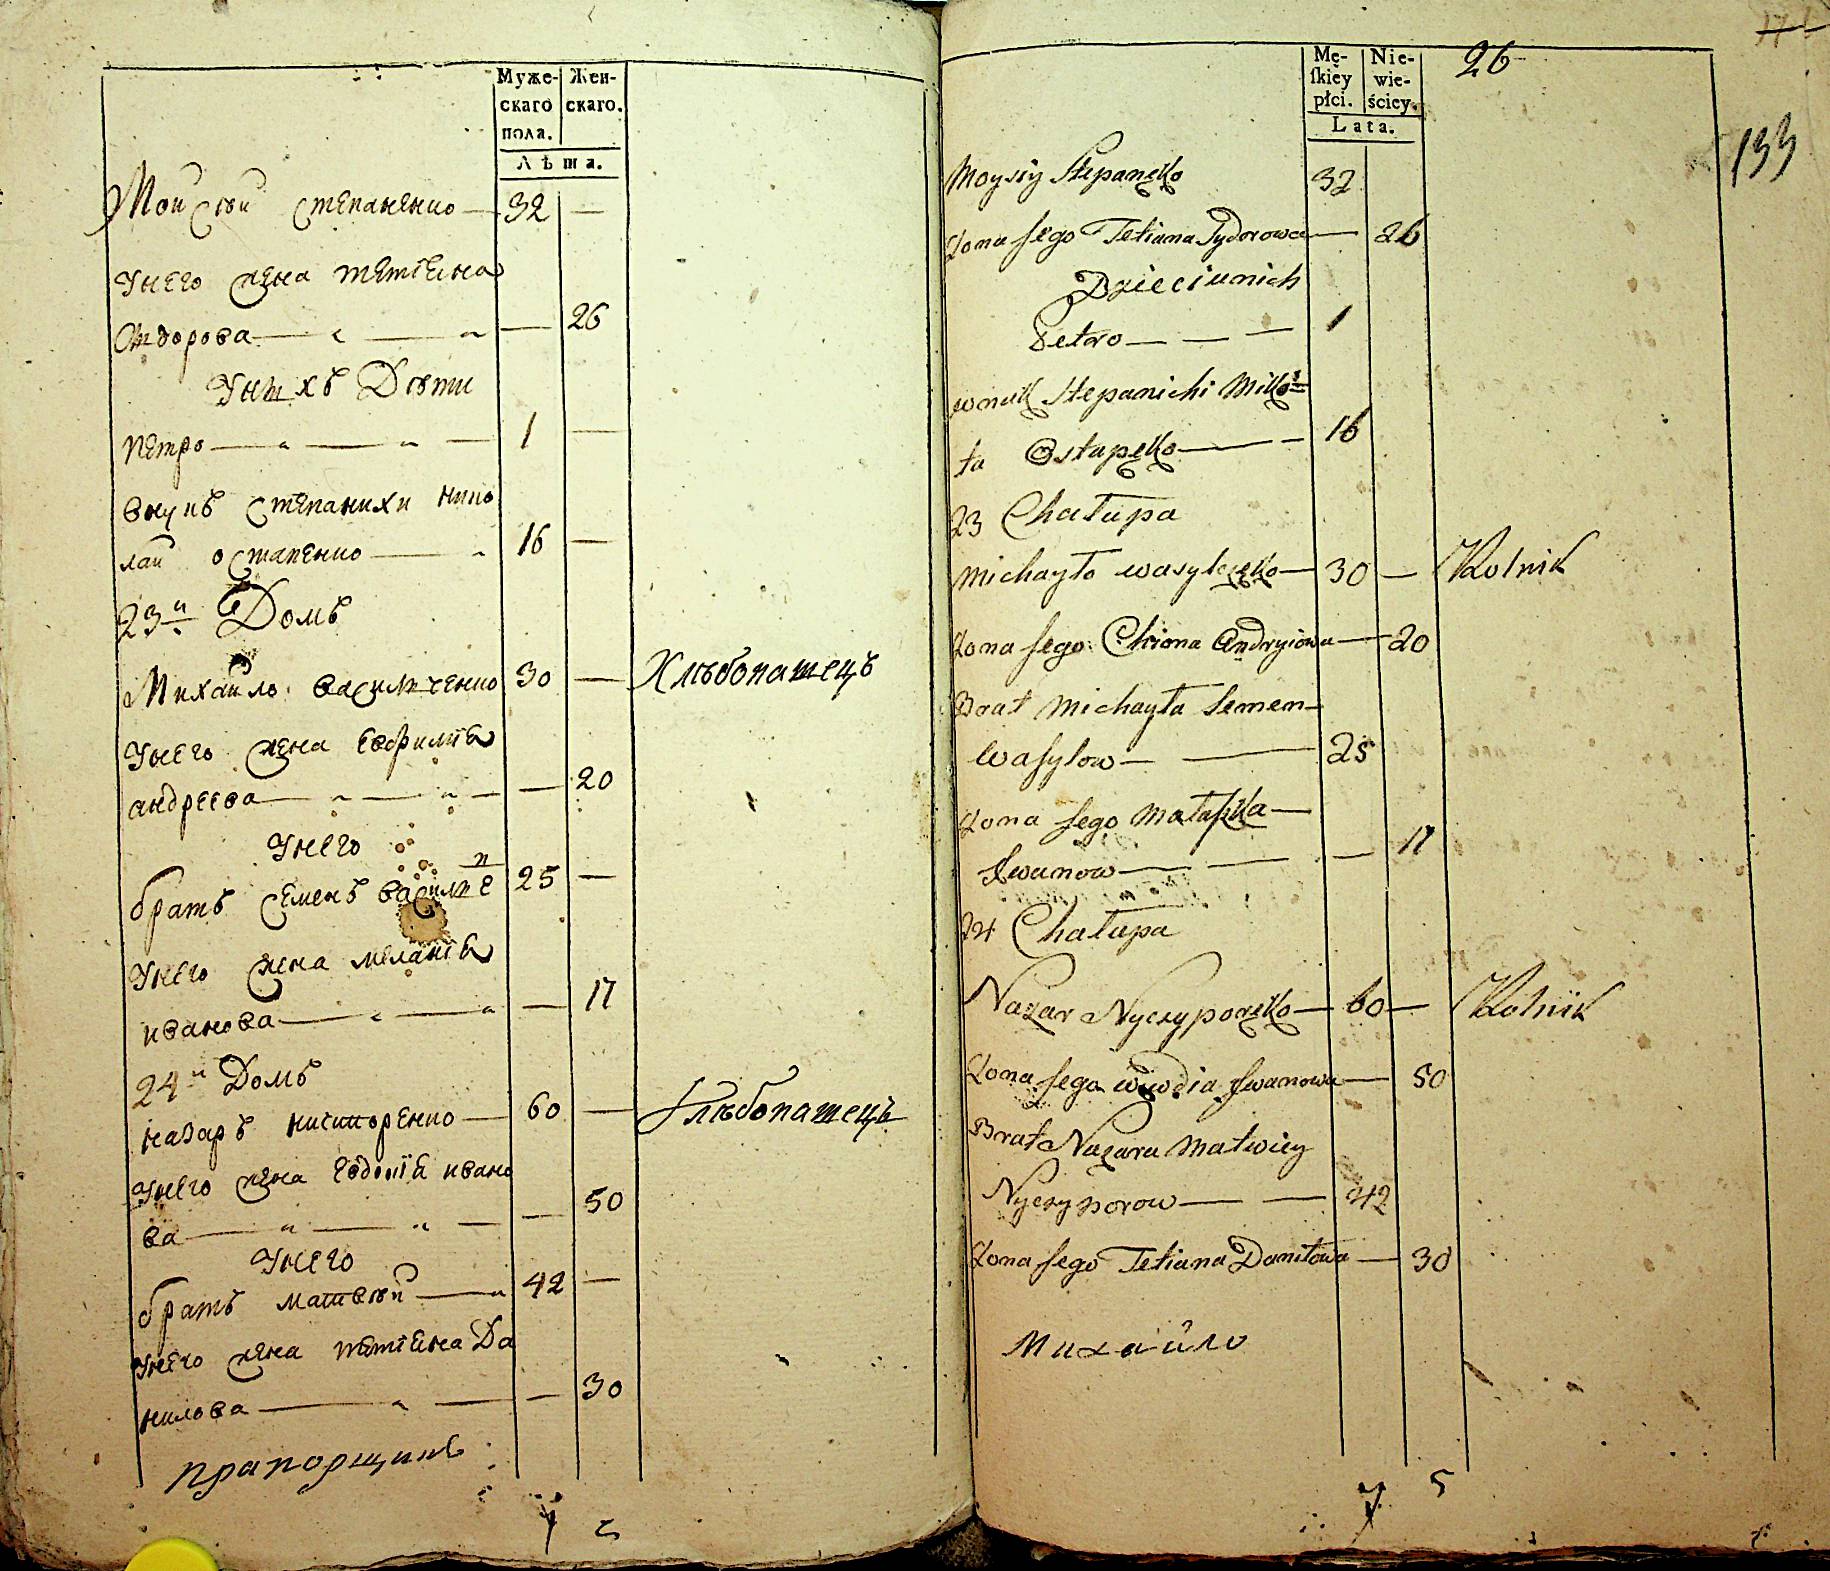 Муже-
скаго
пола.
Жен-
скаго.
Лѣта.
Мойсѣй Степаненко — 32 —
Унего жена Тетіяна
Ѳедорова — — 26
Унихъ Дѣти
Петро — 1 —
внукъ Степанихи Нико
лай Остапенко — 16 —
23й Домъ
Михайло Василченко 30 — Хлѣбопашецъ
Унего жена Евфимія
андреева — — 20
Унего
братъ Семенъ Василіе 25 —
Унего жена Меланія
иванова — — 17
24й Домъ
Назаръ Ничипоренко — 60 — Хлѣбопашецъ
Унего жена Евдокія ивано
ва — — 50
Унего
братъ Матвѣй — 42 —
Унего жена Тетіяна Да
нилова — — 30
прапорщикъ
7
Mę-
skiéy
płci.
Nie-
wie-
ściey.
Lata.
26
133
Moysiy Stepanęko 32
Żona Jego Tetiana Sydorowa — 26
Dzieci unich
Petro — — — 1
wnuk Stepanichi Miko
ła Ostapęko — — 16
23 Chałupa
Michayło Wasylczęko — 30 — Rolnik
Żona Jego Chiona Andryiowa — 20
Brat Michayła Semem
Wasylow — — 25
Żona Jego Małaszka —
Iwanow — — — 17
24 Chałupa
Nazar Nyczyporęko — 60 — Rolnik
Żona Jego Wiwdia Iwanowa — 50
Brat Nazara Matwiey
Nyczyporow — — 42
Żona Jego Tetiana Daniłowa — 30
Михайло
7 5